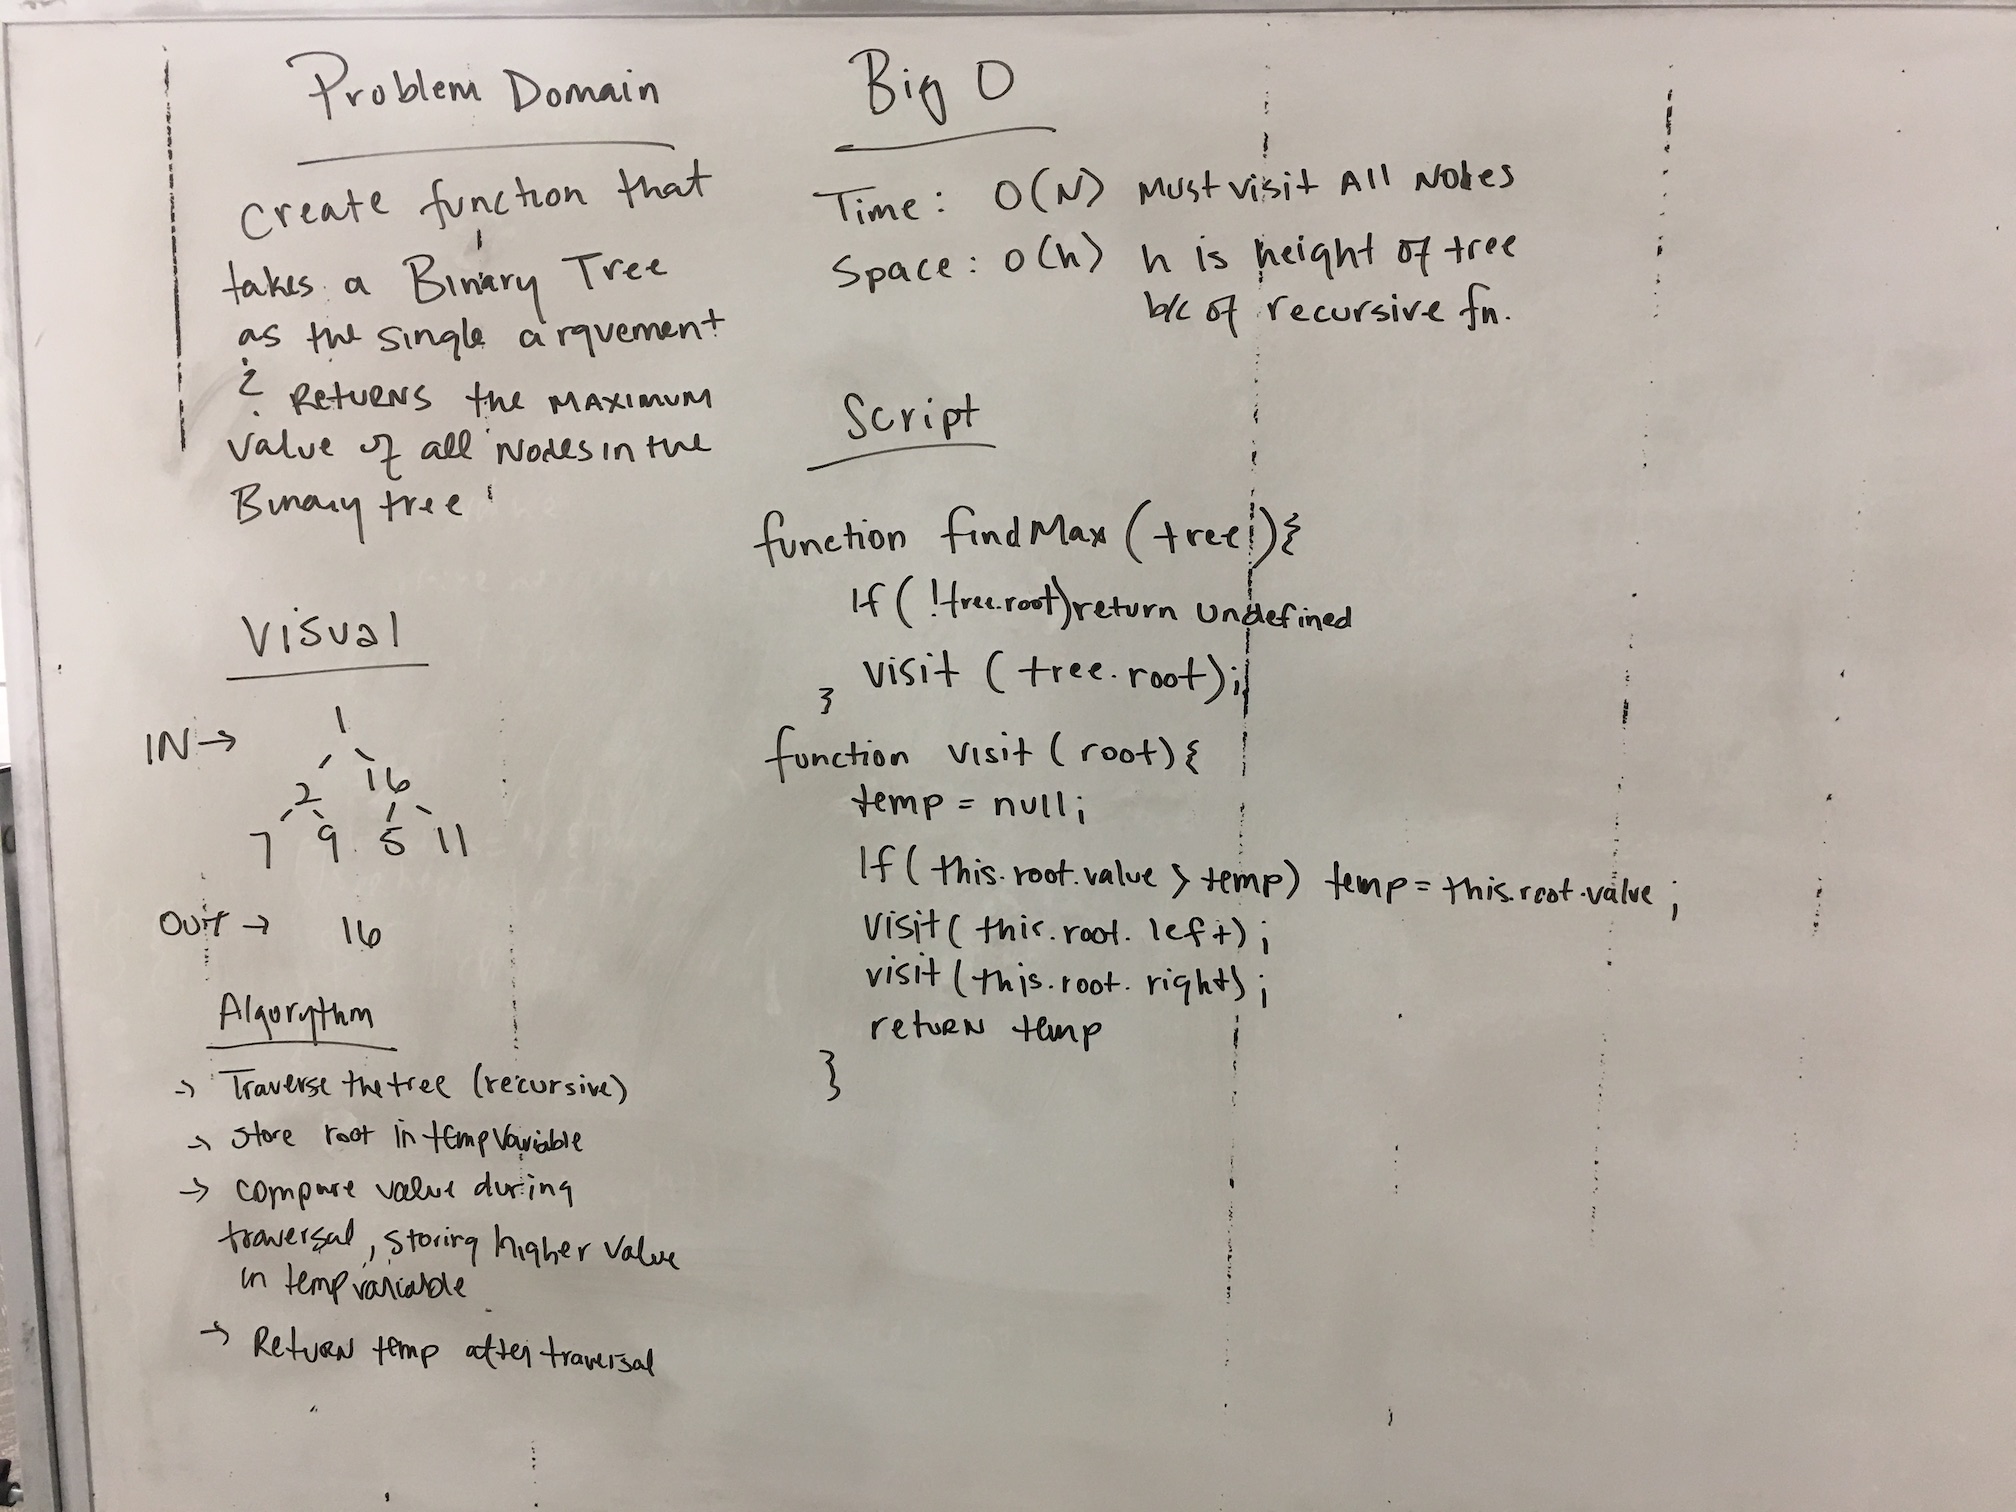 Problem Domain
Create function that
takes a Binary Tree
as the single arguement
& Returns the MAXIMUM
value of all Nodes in the
Binary tree
Visual
IN →
1
2 16
7 9 5 11
OUT → 16
Algorythm
→ Traverse the tree (recursive)
→ Store root in temp variable
→ compare value during
traversal, storing higher value
in temp variable
→ Return temp after traversal
Big O
Time: O(N) Must visit All Nodes
Space: O(h) h is height of tree
b/c of recursive fn.
Script
function findMax (tree){
If ( !tree.root) return undefined
visit (tree.root);
}
function visit (root) {
temp = null;
If (this.root.value > temp) temp = this.root.value ;
visit( this.root.left);
visit (this.root.right);
return temp
}